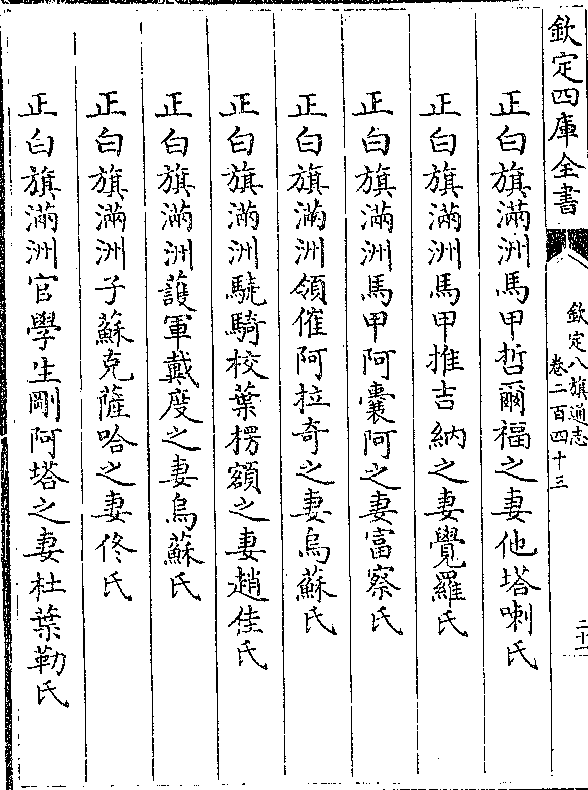 欽定四庫全書
欽定八旗通志
卷二百四十三
正白旗滿洲馬甲哲爾福之妻他塔喇氏
正白旗滿洲馬甲推吉納之妻覺羅氏
正白旗滿洲馬甲阿囊阿之妻富察氏
正白旗滿洲領催阿拉奇之妻烏蘇氏
正白旗滿洲驍騎校葉楞額之妻趙佳氏
正白旗滿洲護軍戴度之妻烏蘇氏
正白旗滿洲子蘇克薩哈之妻佟氏
正白旗滿洲官學生剛阿塔之妻杜葉勒氏